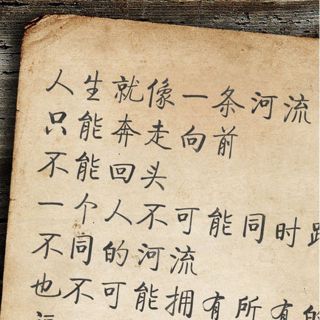 人生就像一条河流
只能奔走向前
不能回头
一个人不可能同时
不同的河流
也不可能拥有所有的